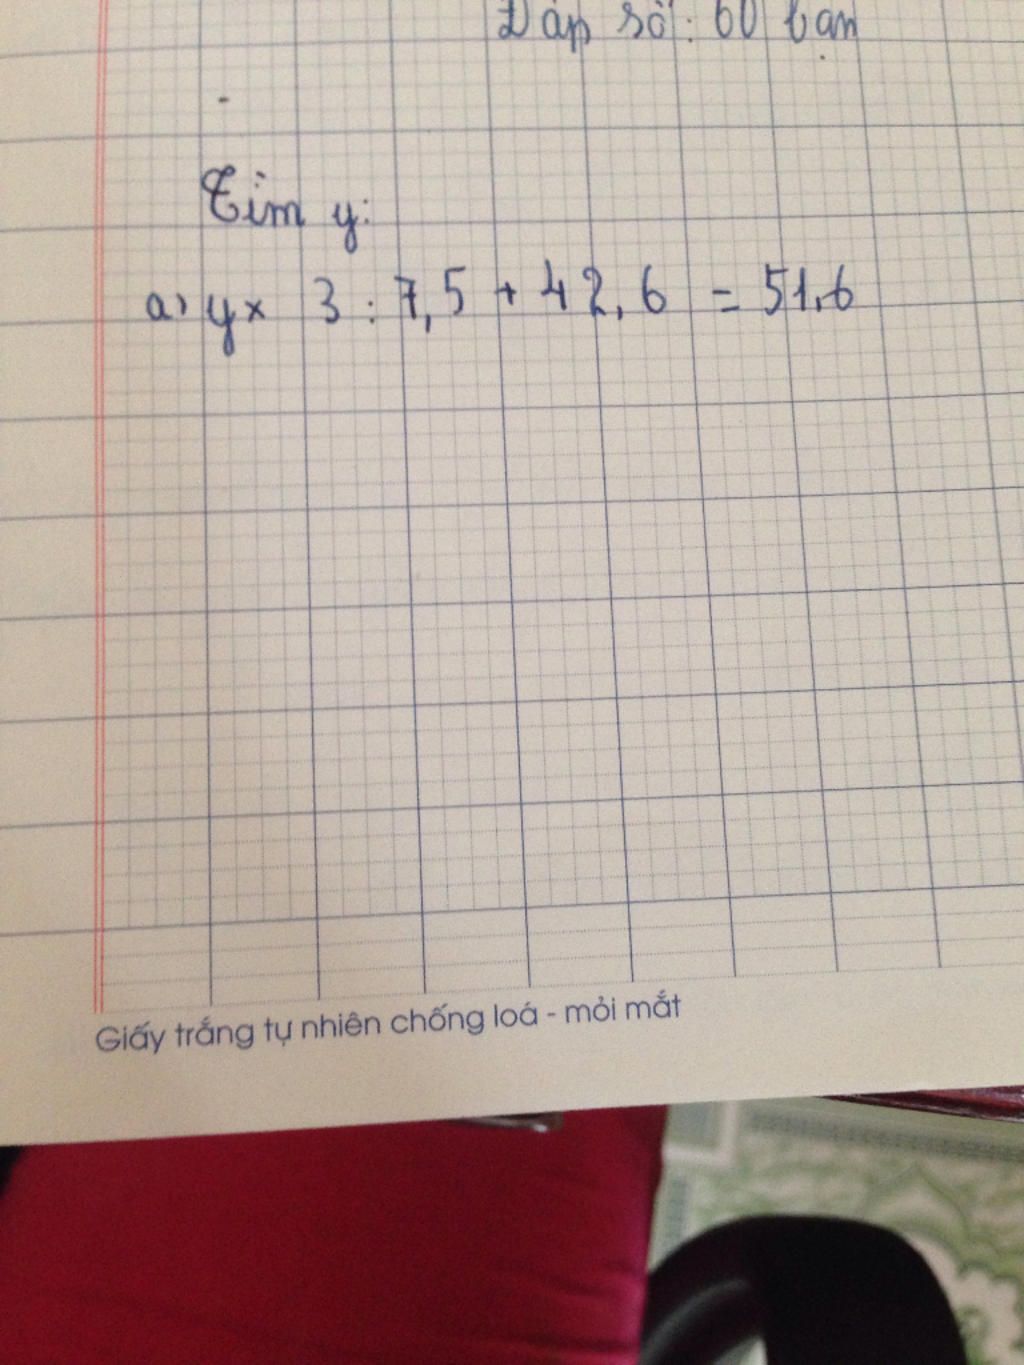 Đáp số: 60 bạn
Tìm y:
a) y x 3 : 7,5 + 42,6 = 51,6
Giấy trắng tự nhiên chống loá - mỏi mắt